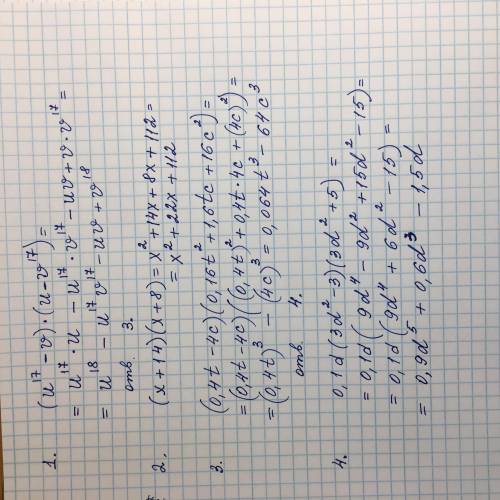 1. (u¹⁷ - v) · (u - v¹⁷) =
= u¹⁷ · u - u¹⁷ · v¹⁷ - uv + v · v¹⁷ =
= u¹⁸ - u¹⁷v¹⁷ - uv + v¹⁸
отв 3.
2. (x + 14)(x + 8) = x² + 14x + 8x + 112 =
= x² + 22x + 112
3. (0,4t - 4c)(0,16t² + 1,6tc + 16c²) =
= (0,4t - 4c)((0,4t)² + 0,4t · 4c + (4c)²) =
= (0,4t)³ - (4c)³ = 0,064t³ - 64c³
отв 4.
4. 0,1d(3d² - 3)(3d² + 5) =
= 0,1d(9d⁴ - 9d² + 15d² - 15) =
= 0,1d(9d⁴ + 6d² - 15) =
= 0,9d⁵ + 0,6d³ - 1,5d